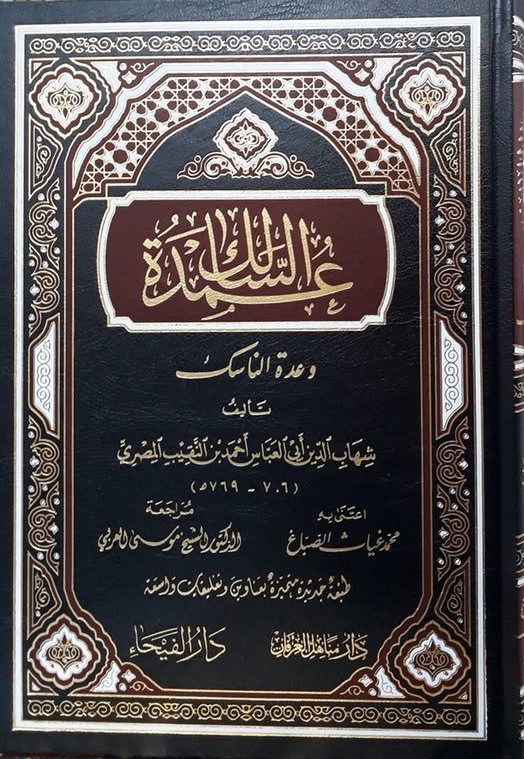 عُمدَةُ السَّالِك
وعدة الناسك
تأليف
شِهَابِ الدِّين أَبِي العَبَّاس أَحْمَد بْن النَّقِيب المِصْرِيّ
(٧٠٦ - ٧٦٩ھ)
اعتنى به مُرَاجَعَة
محمد غياث الصباغ الدكتور الشيخ موسى العربي
طبعة جديدة متميزة بعناوين وتعليقات واسعة
دَارُ مناهل العرفان دَارُ الفَيْحَاءِ